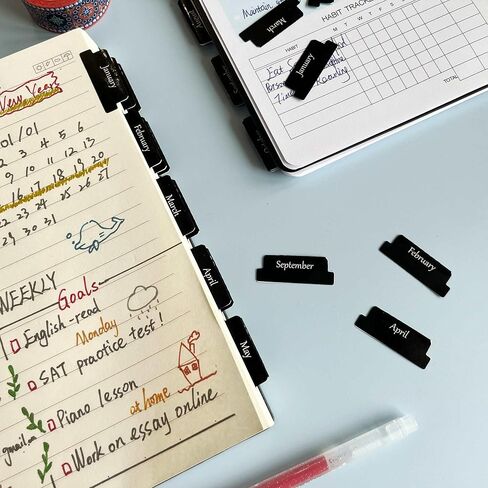 New Year
01/01
2 3 4 5 6
9 10 11 12 13
16 17 18 19 20
22 23 24 25 26 27
29 30 31
WEEKLY
Goals
English-read
Monday
SAT practice test!
Piano lesson
at home
Work on essay online
January
February
March
April
May
Maintain
March
January
HABIT TRACKER
HABIT
M T W T F S S
TOTAL
Eat
Reading
September
February
April